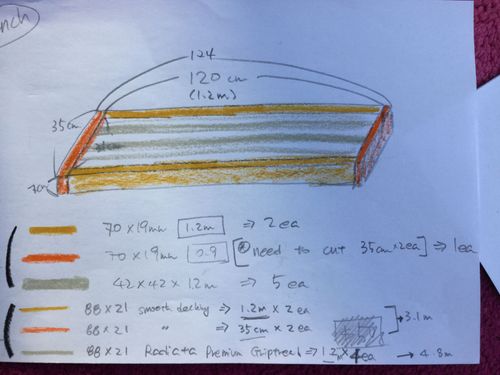 nch
124
120 cm
(1.2m)
35cm
70
70 × 19mm 1.2m ⇒ 2 ea
70 × 19mm 0.9 [ need to cut 35cm × 2ea ] ⇒ 1ea
42 × 42 × 1.2m ⇒ 5 ea
88 × 21 smooth decking ⇒ 1.2m × 2 ea
88 × 21 " ⇒ 35cm × 2 ea
3.1m
88 × 21 Radiata Premium Griptread ⇒ 1.2m × 4ea → 4.8m